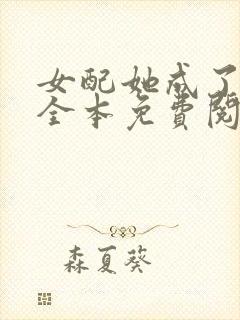 女配她成了
全本免费阅
森夏葵